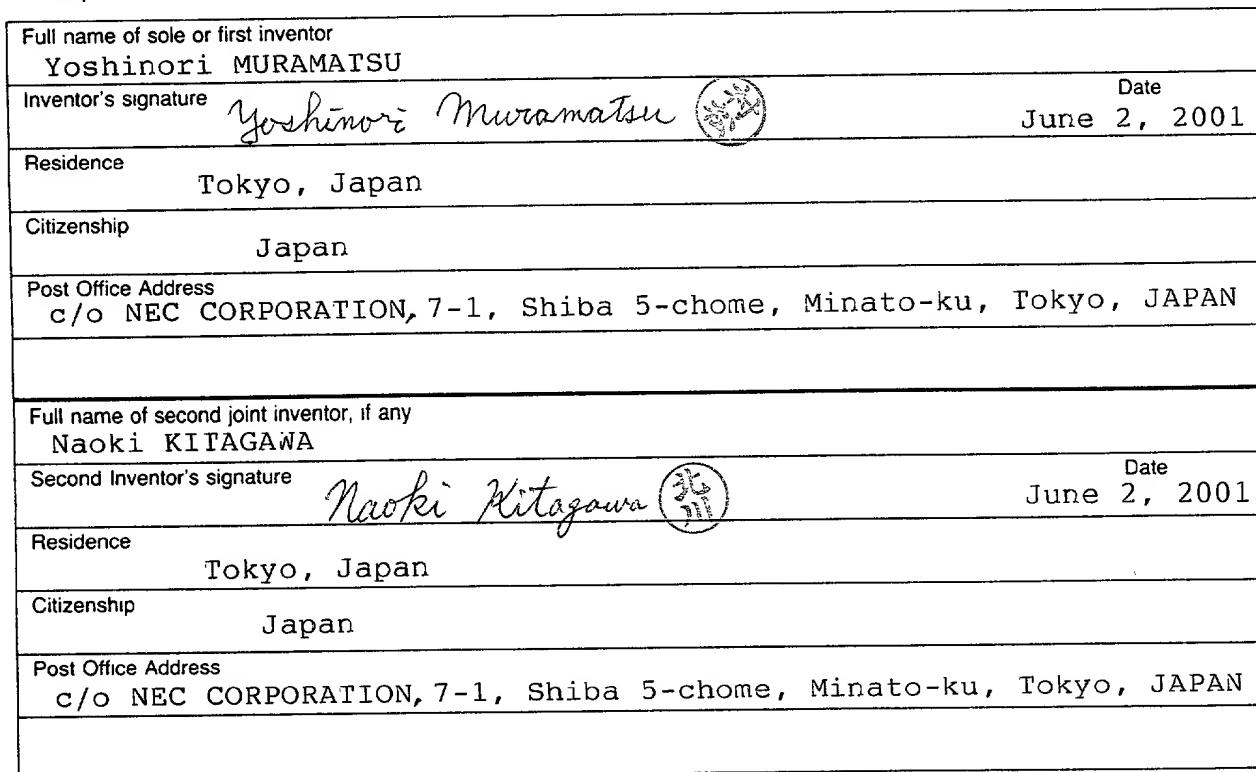 Full name of sole or first inventor
Yoshinori MURAMATSU
Inventor's signature Yoshinori Muramatsu
Date
June 2, 2001
Residence
Tokyo, Japan
Citizenship
Japan
Post Office Address
c/o NEC CORPORATION, 7-1, Shiba 5-chome, Minato-ku, Tokyo, JAPAN
Full name of second joint inventor, if any
Naoki KITAGAWA
Second Inventor's signature Naoki Kitagawa 北川
Date
June 2, 2001
Residence
Tokyo, Japan
Citizenship
Japan
Post Office Address
c/o NEC CORPORATION, 7-1, Shiba 5-chome, Minato-ku, Tokyo, JAPAN